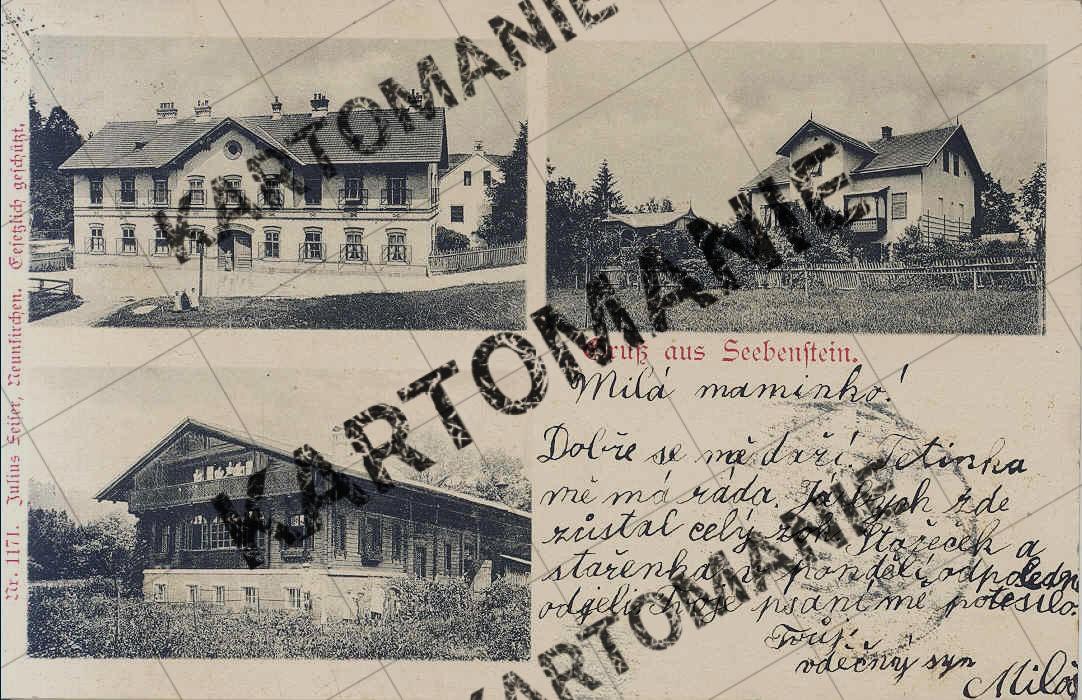 Nr. 1171. Julius Seiser, Neunkirchen. Gesetzlich geschützt.
Gruß aus Seebenstein.
Milá maminko!
Dobře se mě daří. Tetinka
mě má ráda. Já bych zde
zůstal celý rok. Stařeček a
stařenka v pondělí odpoledn
odjeli. Tvoje psaní mě potěšilo.
Tvůj
vděčný syn
Miloš
KARTOMANIE
KARTOMANIE
KARTOMANIE
KARTOMANIE